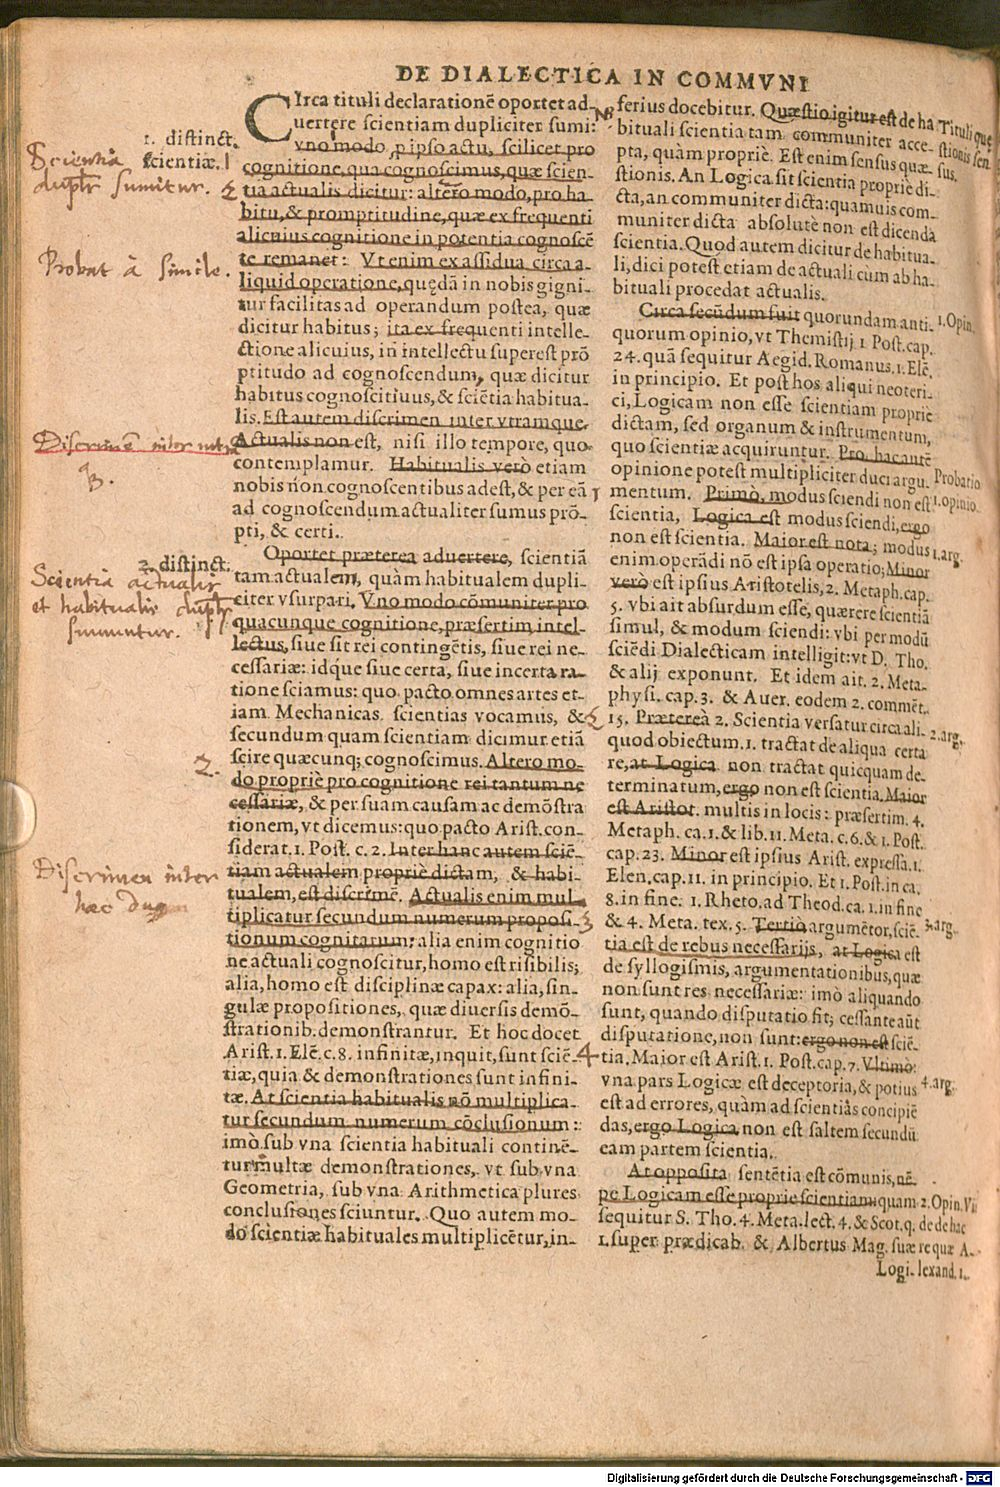 DE DIALECTICA IN COMMVNI
CIrca tituli declarationē oportet ad-
uertere scientiam dupliciter sumi:
vno modo, p ipso actu, scilicet pro
cognitione, qua cognoscimus, quæ scien-
tia actualis dicitur: altero modo, pro ha
bitu, & promptitudine, quæ ex frequenti
alicuius cognitione in potentia cognoscē
te remanet: Vt enim ex assidua circa a-
liquid operatione, quędā in nobis gigni-
tur facilitas ad operandum postea, quæ
dicitur habitus; ita ex frequenti intelle-
ctione alicuius, in intellectu superest prō
ptitudo ad cognoscendum, quæ dicitur
habitus cognoscitiuus, & sciētia habitua-
lis. Est autem discrimen inter vtramque.
Actualis non est, nisi illo tempore, quo
contemplamur. Habitualis verò etiam
nobis non cognoscentibus adest, & per eā
ad cognoscendum actualiter sumus prō-
pti, & certi.
Oportet præterea aduertere, scientiā
tam actualem, quàm habitualem dupli-
citer vsurpari. Vno modo cōmuniter pro
quacunque cognitione, præsertim intel-
lectus, siue sit rei contingētis, siue rei ne-
cessariæ: idque siue certa, siue incerta ra-
tione sciamus: quo pacto omnes artes et-
iam Mechanicas scientias vocamus, &
secundum quam scientiam dicimur etiā
scire quæcunq; cognoscimus. Altero mo-
do propriè pro cognitione rei tantum ne
cessariæ, & per suam causam ac demōstra
tionem, vt dicemus: quo pacto Arist. con-
siderat. 1. Post. c. 2. Inter hanc autem sciē-
tiam actualem propriè dictam, & habi-
tualem, est discrimē. Actualis enim mul-
tiplicatur secundum numerum proposi-
tionum cognitarum: alia enim cognitio
ne actuali cognoscitur, homo est risibilis;
alia, homo est disciplinæ capax: alia, sin-
gulæ propositiones, quæ diuersis demō-
strationib. demonstrantur. Et hoc docet
Arist. 1. Elē. c. 8. infinitæ, inquit, sunt sciē-
tiæ, quia & demonstrationes sunt infini-
tæ. At scientia habitualis nō multiplica-
tur secundum numerum cōclusionum:
imò sub vna scientia habituali continē-
tur multæ demonstrationes, vt sub vna
Geometria, sub vna Arithmetica plures
conclusiones sciuntur. Quo autem mo-
do scientiæ habituales multiplicētur, in-
1. distinct.
scientiæ.
Scientia
duplr sumitur.
1
2
Probat à simile.
Discrimē inter utrā
2. distinct.
Scientia actualis
et habitualis duplr
sumuntur.
1
2.
Discrimen inter
hec duo
ferius docebitur. Quæstio igitur est de ha
bituali scientia tam communiter acce-
pta, quàm propriè. Est enim sensus quæ-
stionis. An Logica sit scientia propriè di-
cta, an communiter dicta: quamuis com-
muniter dicta absolutè non est dicenda
scientia. Quod autem dicitur de habitua-
li, dici potest etiam de actuali cum ab ha-
bituali procedat actualis.
Circa secūdum fuit quorundam anti-
quorum opinio, vt Themistij 1 Post. cap.
24. quā sequitur Aegid. Romanus. 1. Elē.
in principio. Et post hos aliqui neoteri-
ci, Logicam non esse scientiam propriè
dictam, sed organum & instrumentum,
quo scientiæ acquiruntur. Pro hac autē
opinione potest multipliciter duci argu-
mentum. Primò, modus sciendi non est
scientia, Logica est modus sciendi, ergo
non est scientia. Maior est nota; modus
enim operādi nō est ipsa operatio; Minor
verò est ipsius Aristotelis, 2. Metaph. cap.
5. vbi ait absurdum esse, quærere scientiā
simul, & modum sciendi: vbi per modū
sciēdi Dialecticam intelligit: vt D. Tho.
& alij exponunt. Et idem ait. 2. Meta-
physi. cap. 3. & Auer. eodem 2. commēt.
15. Præterea 2. Scientia versatur circa ali-
quod obiectum. 1. tractat de aliqua certa
re, at Logica non tractat quicquam de-
terminatum, ergo non est scientia. Maior
est Aristot. multis in locis: præsertim. 4.
Metaph. ca. 1. & lib. 11. Meta. c. 6. & 1. Post.
cap. 23. Minor est ipsius Arist. expressa. 1.
Elen. cap. 11. in principio. Et 1. Post. in ca.
8. in fine. 1. Rheto. ad Theod. ca. 1. in fine
& 4. Meta. tex. 5. Tertiò argumētor, sciē-
tia est de rebus necessarijs, at Logica est
de syllogismis, argumentationibus, quæ
non sunt res necessariæ: imò aliquando
sunt, quando disputatio fit; cessante aūt
disputatione, non sunt: ergo non est sciē-
tia. Maior est Arist. 1. Post. cap. 7. Vltimò:
vna pars Logicæ est deceptoria, & potius
est ad errores, quàm ad scientias concipiē
das, ergo Logica non est saltem secundū
eam partem scientia.
At opposita sentētia est cōmunis, nē-
pe Logicam esse proprie scientiam: quam
sequitur S. Tho. 4. Meta. lect. 4. & Scot. q.
1. super prædicab. & Albertus Mag. suæ
Logi-
Tituli que
stionis sen
sus.
1. Opin.
Probatio
1. opinio.
1. arg.
2. arg.
3. arg.
4. arg.
2. Opin. Vi
de de hac
re quæ A-
lexand. 1.
1
2
3
4